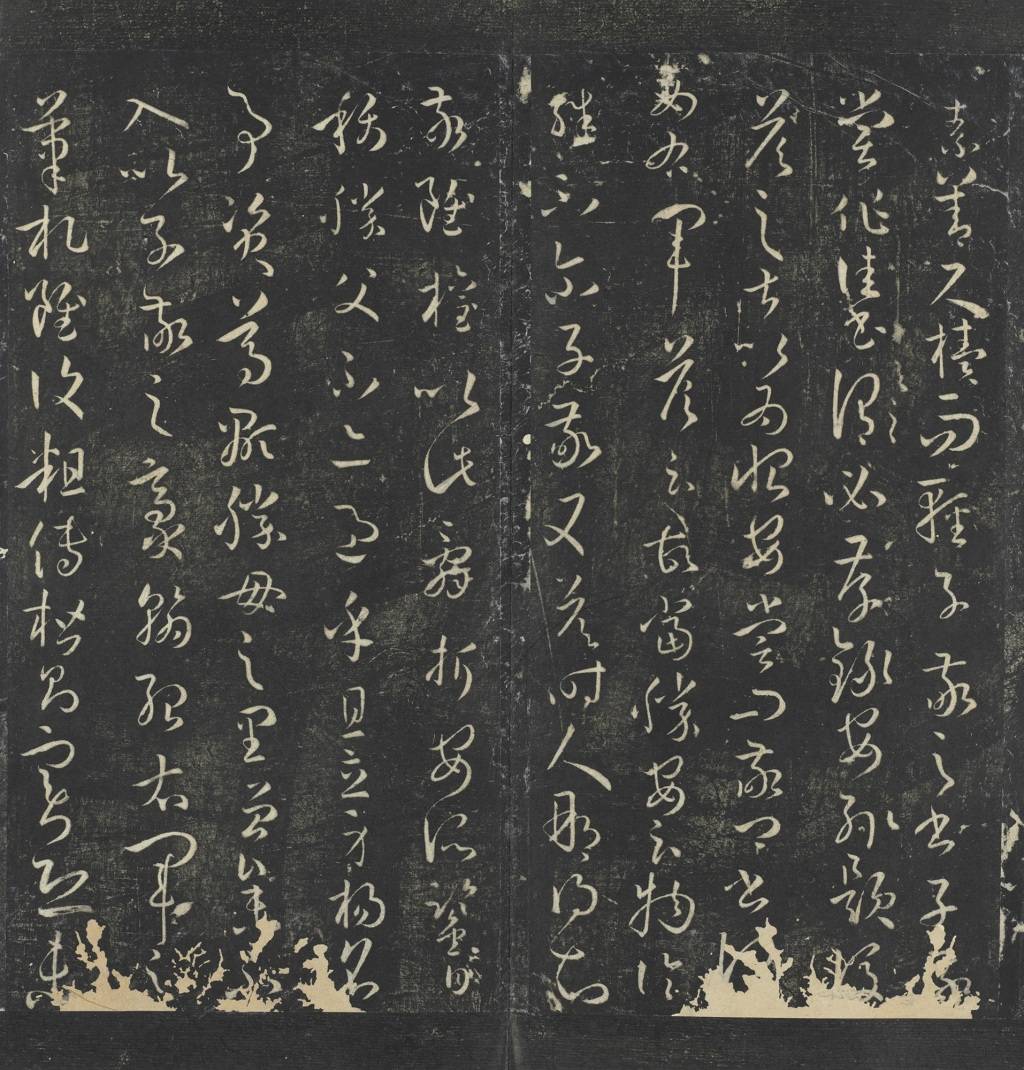 素善尺牘而輕子敬之書子敬
嘗作佳書與之謂必存錄安輒題後
答之甚以為恨安嘗問敬卿書何
如右軍答云故當勝安云物論
殊不爾子敬又答時人那得知
敬雖權以此辭折安所鑒自
稱勝父不亦過乎且立身揚名
事資尊顯勝母之里曾參不
入以子敬之豪翰紹右軍之
筆札雖復粗傳楷則實恐未